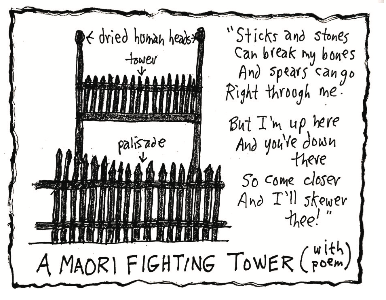 dried human heads
tower
palisade
"Sticks and stones
Can break my bones
And spears can go
Right through me.
But I'm up here
And you're down
there
So come closer
And I'll skewer
thee!"
A MAORI FIGHTING TOWER (with poem)